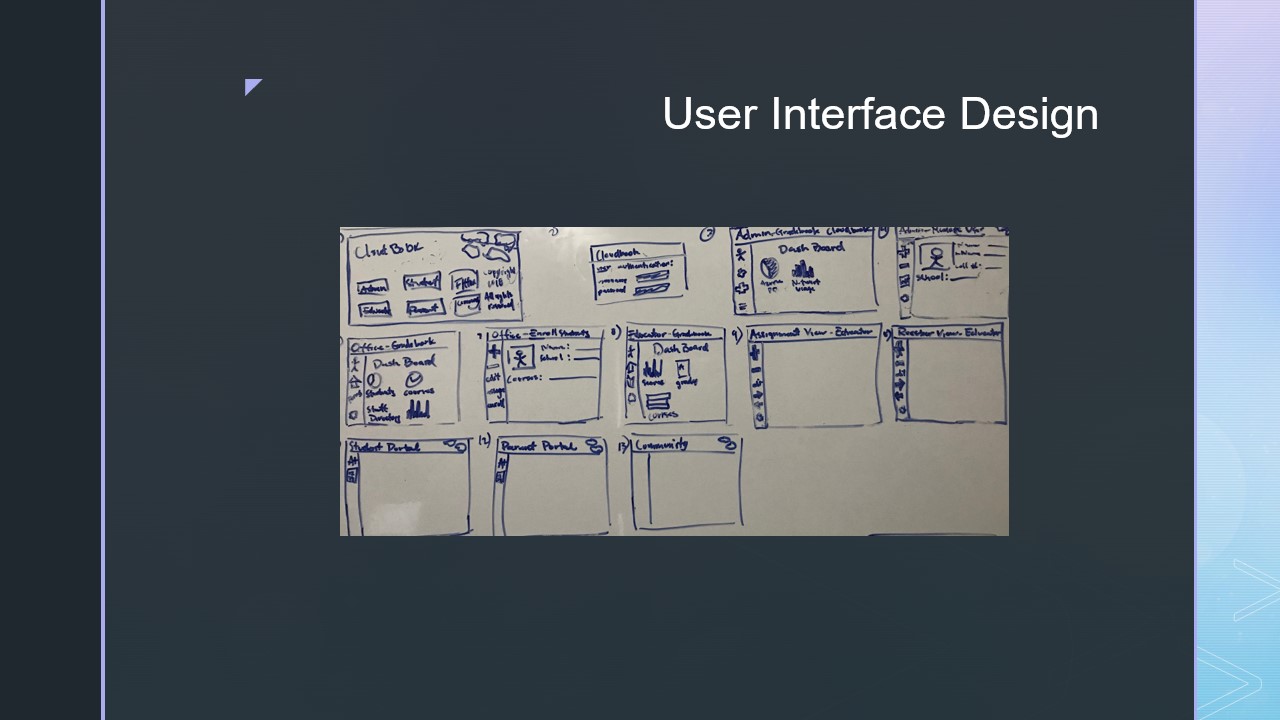 User Interface Design
CloudBook
Admin
Student
Office
Educator
Parent
Copyright
All rights
reserved
2)
Cloudbook
user authentication:
username
password
3
Admin-Gradebook Cloudbook
Dash Board
Access
Network
usage
Admin-Manage User
school:
Office-Gradebook
Dash Board
Students
courses
Staff
Directory
7
Office-Enroll Students
Name:
School:
edit
Courses:
8)
Educator-Gradebook
Dash Board
scores
grades
courses
9)
Assignment View - Educator
Roster View - Educator
Student Portal
12)
Parent Portal
13)
Community